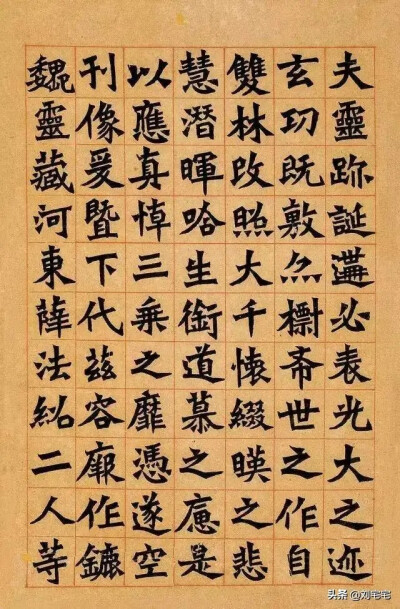 夫靈跡誕遘必表光大之迹
玄功既敷亦標希世之作自
雙林改照大千懷綴暎之悲
慧潛暉哈生銜道慕之是
以應真悼三乘之靡憑遂空
刊像爰暨下代茲容厥作鏕
魏靈藏河東薛法紹二人等
头条 @刘宅宅